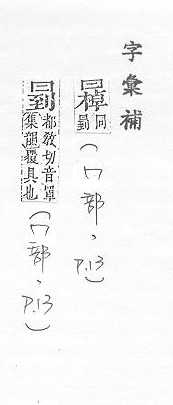 字彙補
同
(冂部、P.13)
都教切音罩
集韻覆具也
(冂部、P.13)